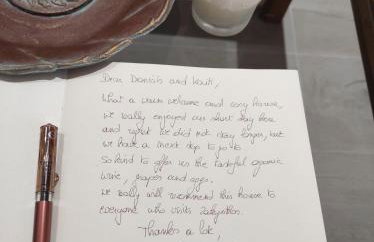 and
What a warm welcome and cosy house,
we really enjoyed our short stay here
and regret we did not stay longer, but
we have a next trip to
So kind to offer us the tasteful organic
wine, grapes and eggs.
We really will recommend this house to
everyone who visits
Thanks a lot,